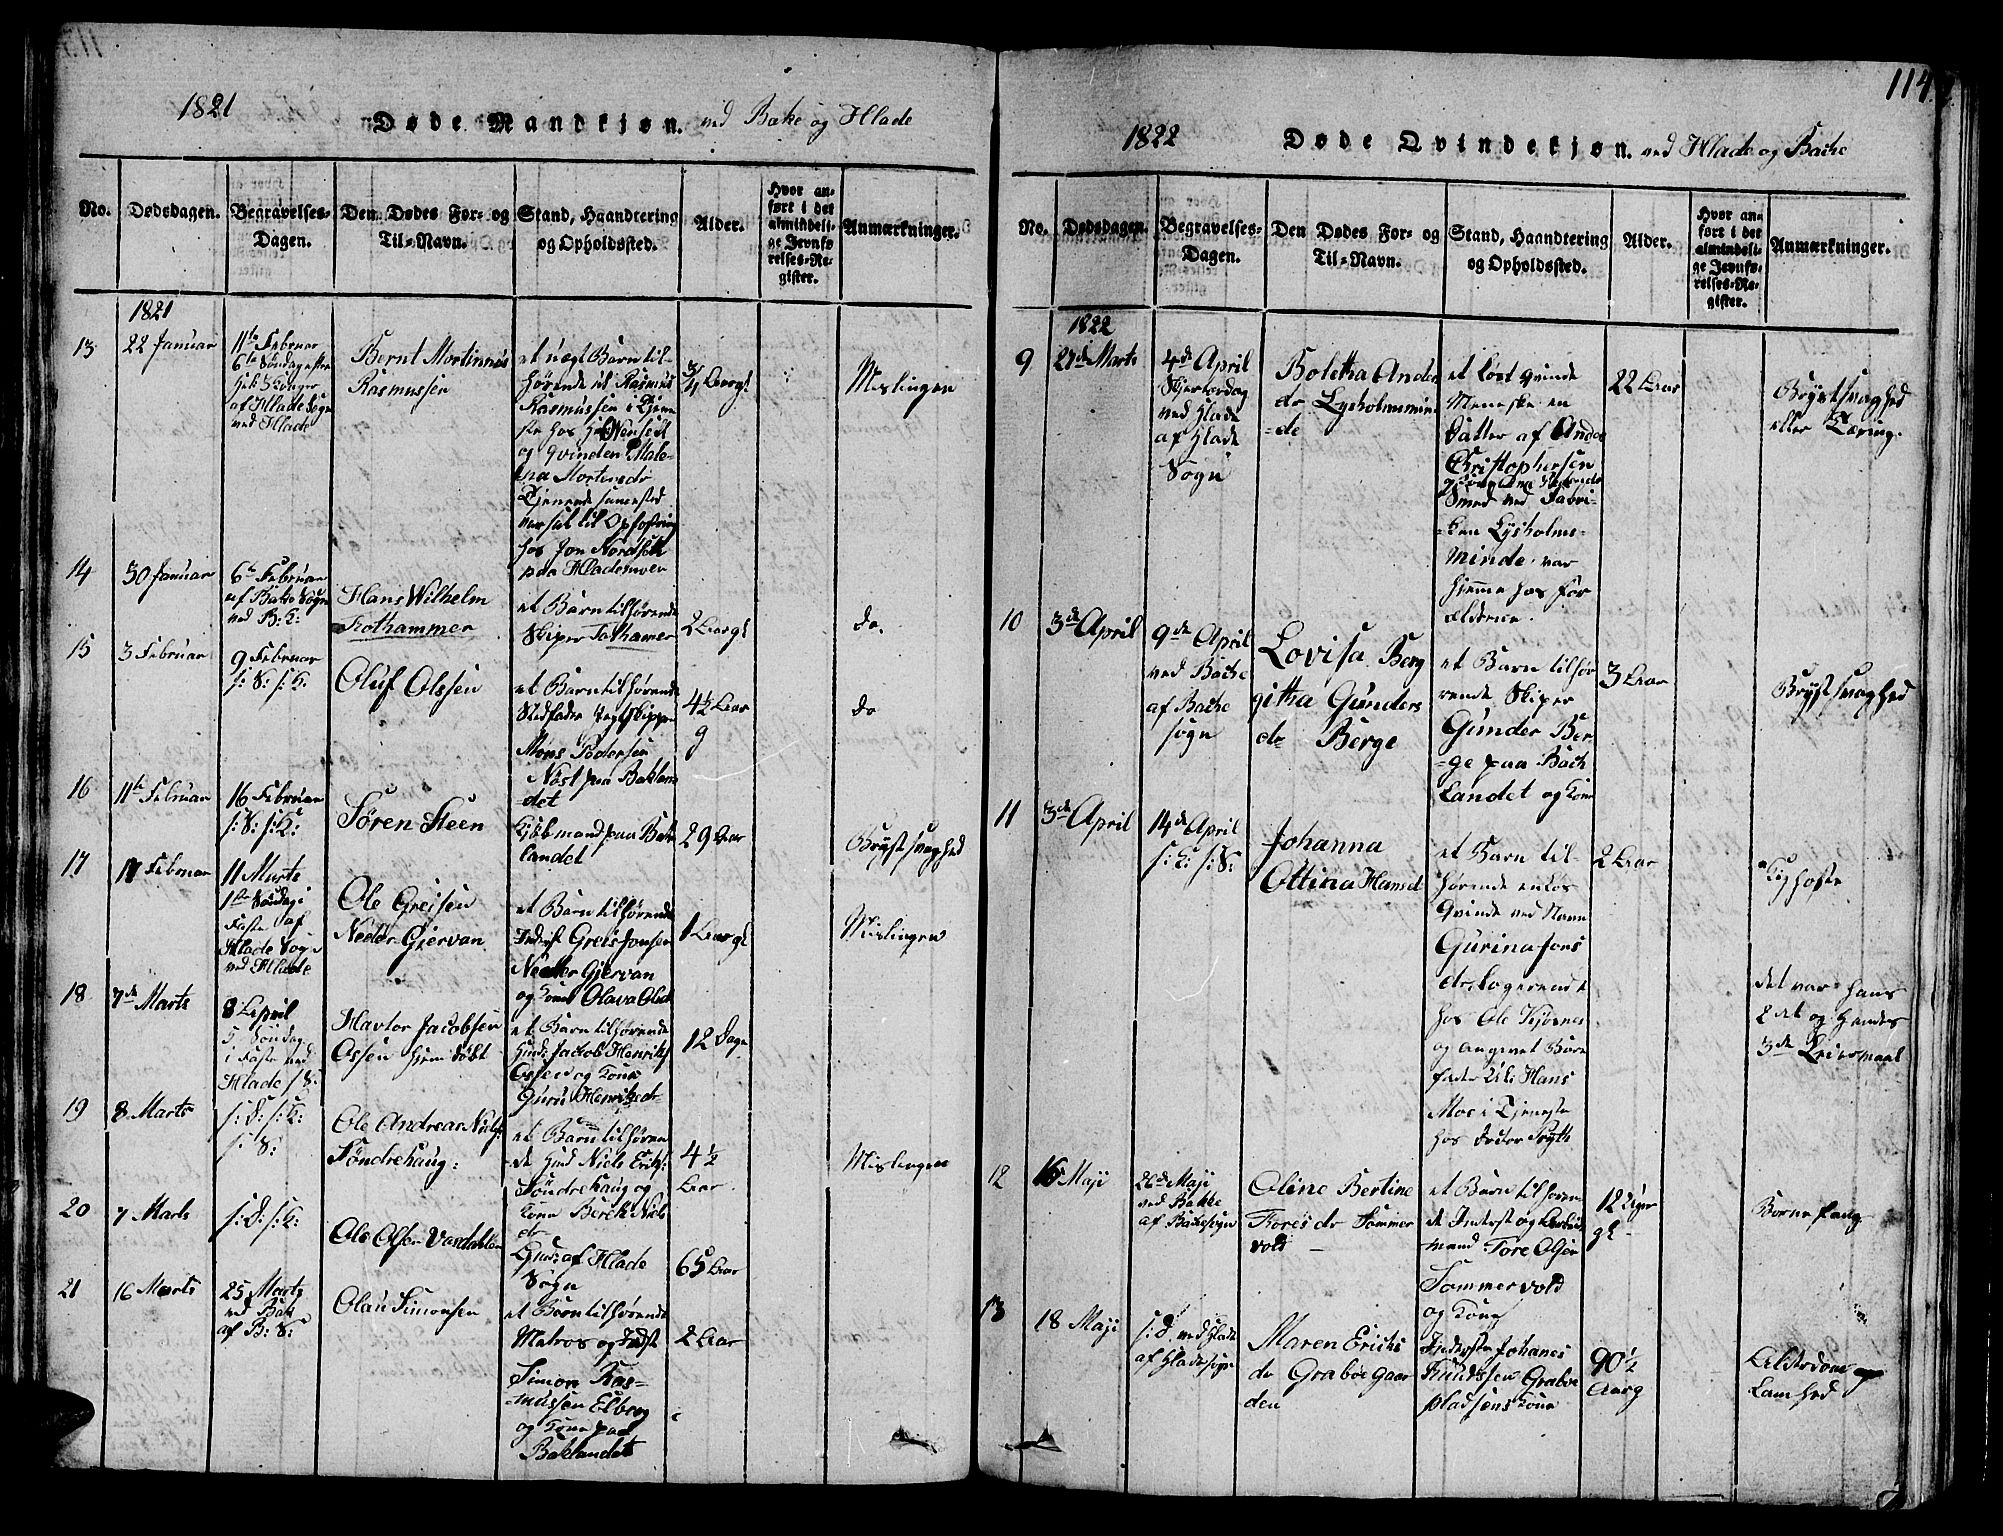 1821
Døde Mandkjøn. ved Bake og Hlade
No.
Dødsdagen.
Begravelses-
Dagen.
Den Dødes For- og
Til-Navn.
Stand, Haandtering
og Opholdssted.
Alder.
Hvor an-
ført i det
almindeli-
ge Jevnfø-
relses-Re-
gister.
Anmærkninger.
1821
13
22 Januar
11te Februar
6te Søndag efter
Hel: 3 Konger
af Hlade Sogn
ved Hlade
Bernt Mortinnus
Rasmussen
et uægt Barn til-
hørende
Rasmus
Rasmussen i Tjene
ste hos
og Qvinden Male-
na Mortensdr
Tjenende sammested
var sat til Opfostring
hos Jon Nordseth
paa Hladmoen
Mislingen
14
30 Januar
6te Februar
af Bakke Sogn
ved B: K:
Hans Wilhelm
Rothammer
et Barn tilhørende
Skiper
2 Aar gl
do.
15
3 Februar
9 Februar
s: S: s: K:
Oluf Olssen
et Barn tilhørende
Stedfader Jagt Skipper
Mons Pedersen
Nøst paa Baklan
=det
4½ Aar
g
do
16
11te Februar
16 Februar
s: S: s: K:
Søren Steen
Kjøbmand paa Bak
landet
29 Aar
Brystsvaghed
17
11 Februar
11 Marts
1te Søndag i
Faste af
Hlade Sogn
ved Hlade
Ole Greisen
Neder Gjervan
et Barn tilhørende
Inderst Greis Jonsen
Neder Gjervan
og Kone Olava Olsd
1 Aar gl
Mislingen
18
7de Marts
8 April
5 Søndag
i Faste ved
Hlade s: S:
Havtor Jacobsen
Ossen hjemdøbt
et Barn tilhørende
Husm: Jacob Henriks
Ossen og Kone
Guru Henriksdr
12 Dage
19
8 Marts
s: D: s: K:
s: S:
Ole Andreas Niels
Søndrehaug:
et Barn tilhøren
de Husm Niels Eriks:
Søndrehaug og
Kone Berit Niels
dr
4½
Aar
Mislingen
20
7 Marts
s: D: s: K:
Ole Olsen Værdahlen
af Hlade
Sogn
65 Aar
21
16 Marts
25 Marts
ved Bak
af B: S:
Olau Simonsen
et Barn tilhørende
Matros og Indst
Simon Ras-
mussen Elberg
og Kone paa
Baklandet
2 Aar
114
1822
Døde Qvindekjøn. ved Hlade og Bache
No.
Dødsdagen.
Begravelses-
Dagen.
Den Dødes For- og
Til-Navn.
Stand, Haandtering
og Opholdssted.
Alder.
Hvor an-
ført i det
almindeli-
ge Jevnfø-
relses-Re-
gister.
Anmærkninger.
1822
9
27de Marts
4de April
Skjertorsdag
ved Hlade
af Hlade
Sogn
Boletha Anders
dr Lysholmsmin
=de
et løst Qvinde
Meneske en
Datter af Anders
Christophersen
Smed ved Fabri-
=ken Lysholms-
minde. var
hjemme hos For
ældrene.
22 Aar
Brystsvaghed
eller Tæring.
10
3de April
9de April
ved Bache
af Bache
sogn
Lovisa Berg
githa Gunders
dr Berge
et Barn tilhø
rende Skiper
Gunder Ber
=ge paa Bach
Landet og Kone
3 Aar
Brystsvaghed
11
3de April
14de April
s: K: s: S:
Johanna
Ottina Hansd
et Barn til-
hørende enløs
Qvinde ved Navn
Gurina Jons
dr. Logerende
hos Ole Kjøsnes
og angivet Barne
fader Uk: Hans
Moe i Tjeneste
hos
2 Aar
Kighoste
det var hans
2det og hendes
3de Leiermaal
12
16 Maji
26de Maji
ved Bakke
af Bachesogn
Oline Bertine
Toresdr Sommer
vold
et Barn tilhøren
de Inderst og Arbeids
mand Tore Olsen
Sommervold
og Kone
12 Uger
gl.
Børne fang
13
18 Maji
s: D. ved Hlade
af Hladesogn
Maren Erichs
dr Grabøe gaar
den
Inderste Johanes
Knudssen Grabøe
pladsens Kone
90½
Aar g
Alderdom og
Lamhed